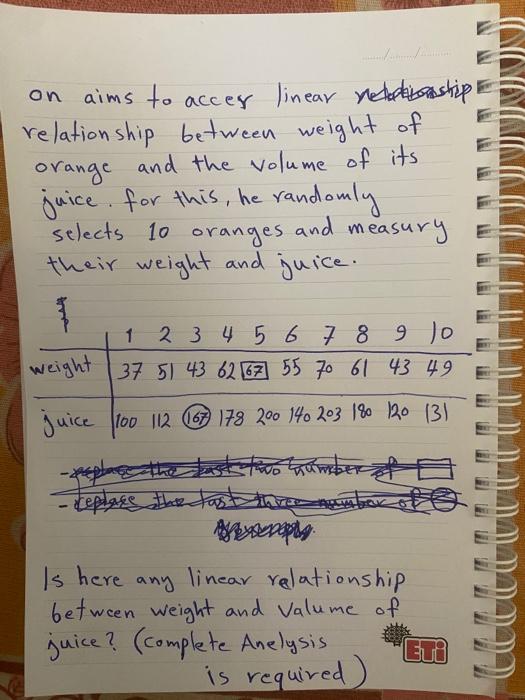 on aims to acces linear relationship
relationship between weight of
orange and the volume of its
juice. for this, he randomly
selects 10 oranges and measury
their weight and juice.
1 2 3 4 5 6 7 8 9 10
weight 37 51 43 62 67 55 70 61 43 49
juice 100 112 167 178 200 140 203 180 120 131
- replase the last two number of
- replase the last three number of
Is here any linear relationship
between weight and Valume of
juice? (complete Anelysis
is required)
ETi